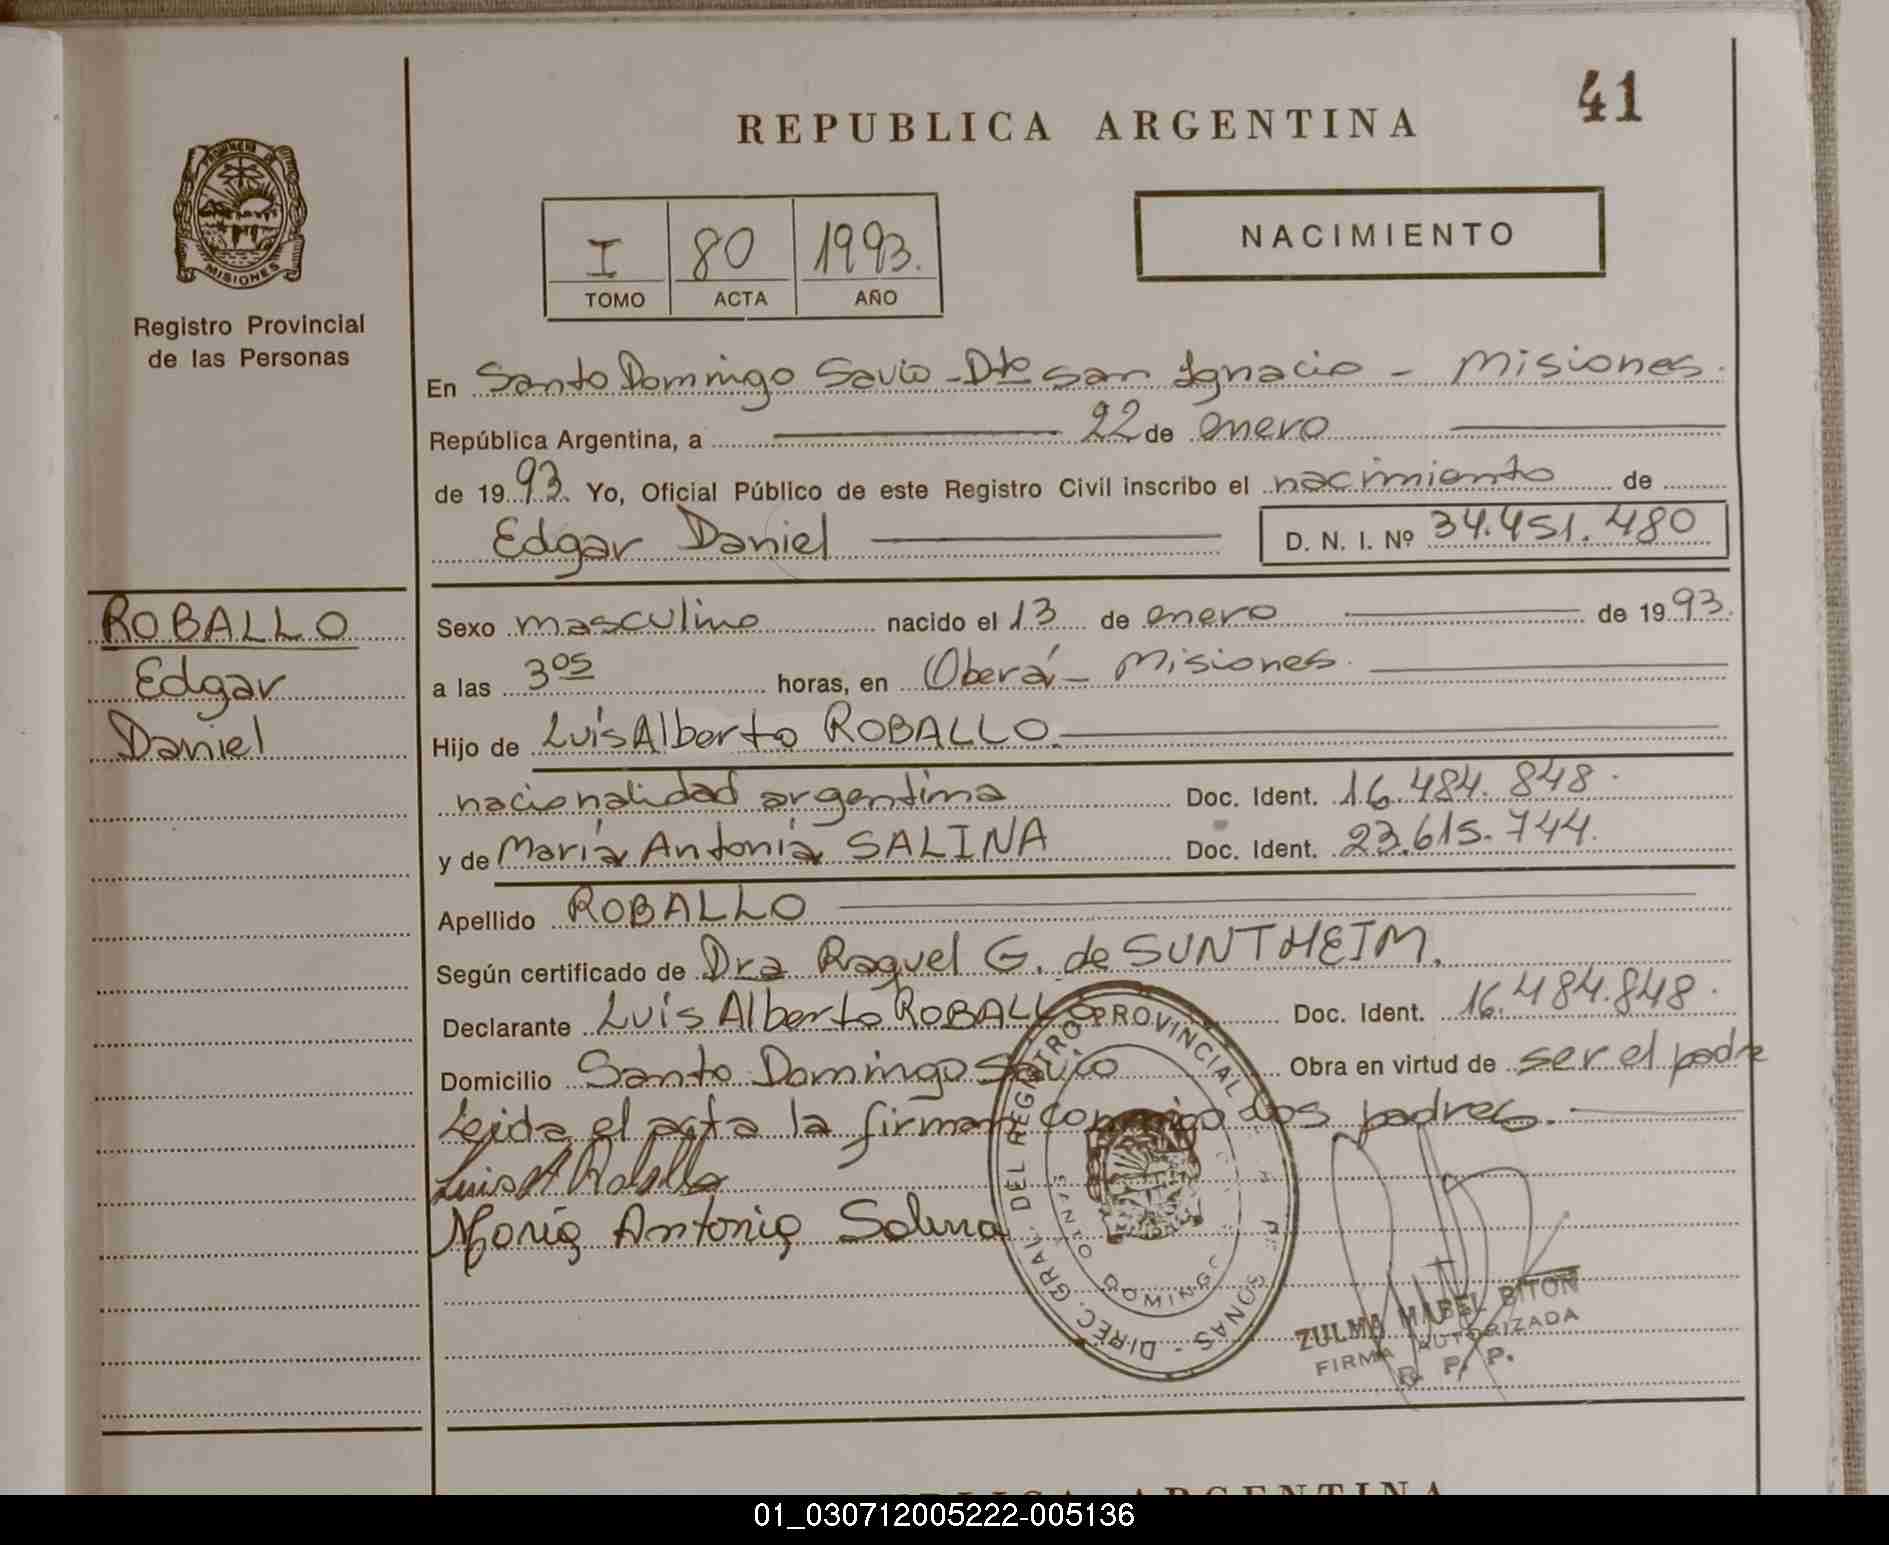 41
REPUBLICA ARGENTINA
PROVINCIA DE
MISIONES
Registro Provincial
de las Personas
I 80 1993.
TOMO ACTA AÑO
NACIMIENTO
En Santo Domingo Savio - Dto San Ignacio - Misiones.
República Argentina, a 22 de enero
de 1993. Yo, Oficial Público de este Registro Civil inscribo el nacimiento de
Edgar Daniel D. N. I. Nº 34.451.480
ROBALLO
Edgar
Daniel
Sexo masculino nacido el 13 de enero de 1993.
a las 3 05 horas, en Oberá - Misiones.
Hijo de Luis Alberto ROBALLO.
nacionalidad argentina Doc. Ident. 16.484.848.
y de María Antonia SALINA Doc. Ident. 23.615.744.
Apellido ROBALLO
Según certificado de Dra Raquel G. de SUNTHEIM.
Declarante Luis Alberto ROBALLO Doc. Ident. 16.484.848.
Domicilio Santo Domingo Savio Obra en virtud de ser el padre
Leida el acta la firman conmigo los padres.
Luis A Roballo
Maria Antonia Salina
DIREC. GRAL. DEL REGISTRO PROVINCIAL
SANTO DOMINGO
ZULMA MABEL BITON
FIRMA AUTORIZADA
R. P. P.
REPUBLICA ARGENTINA
01_030712005222-005136